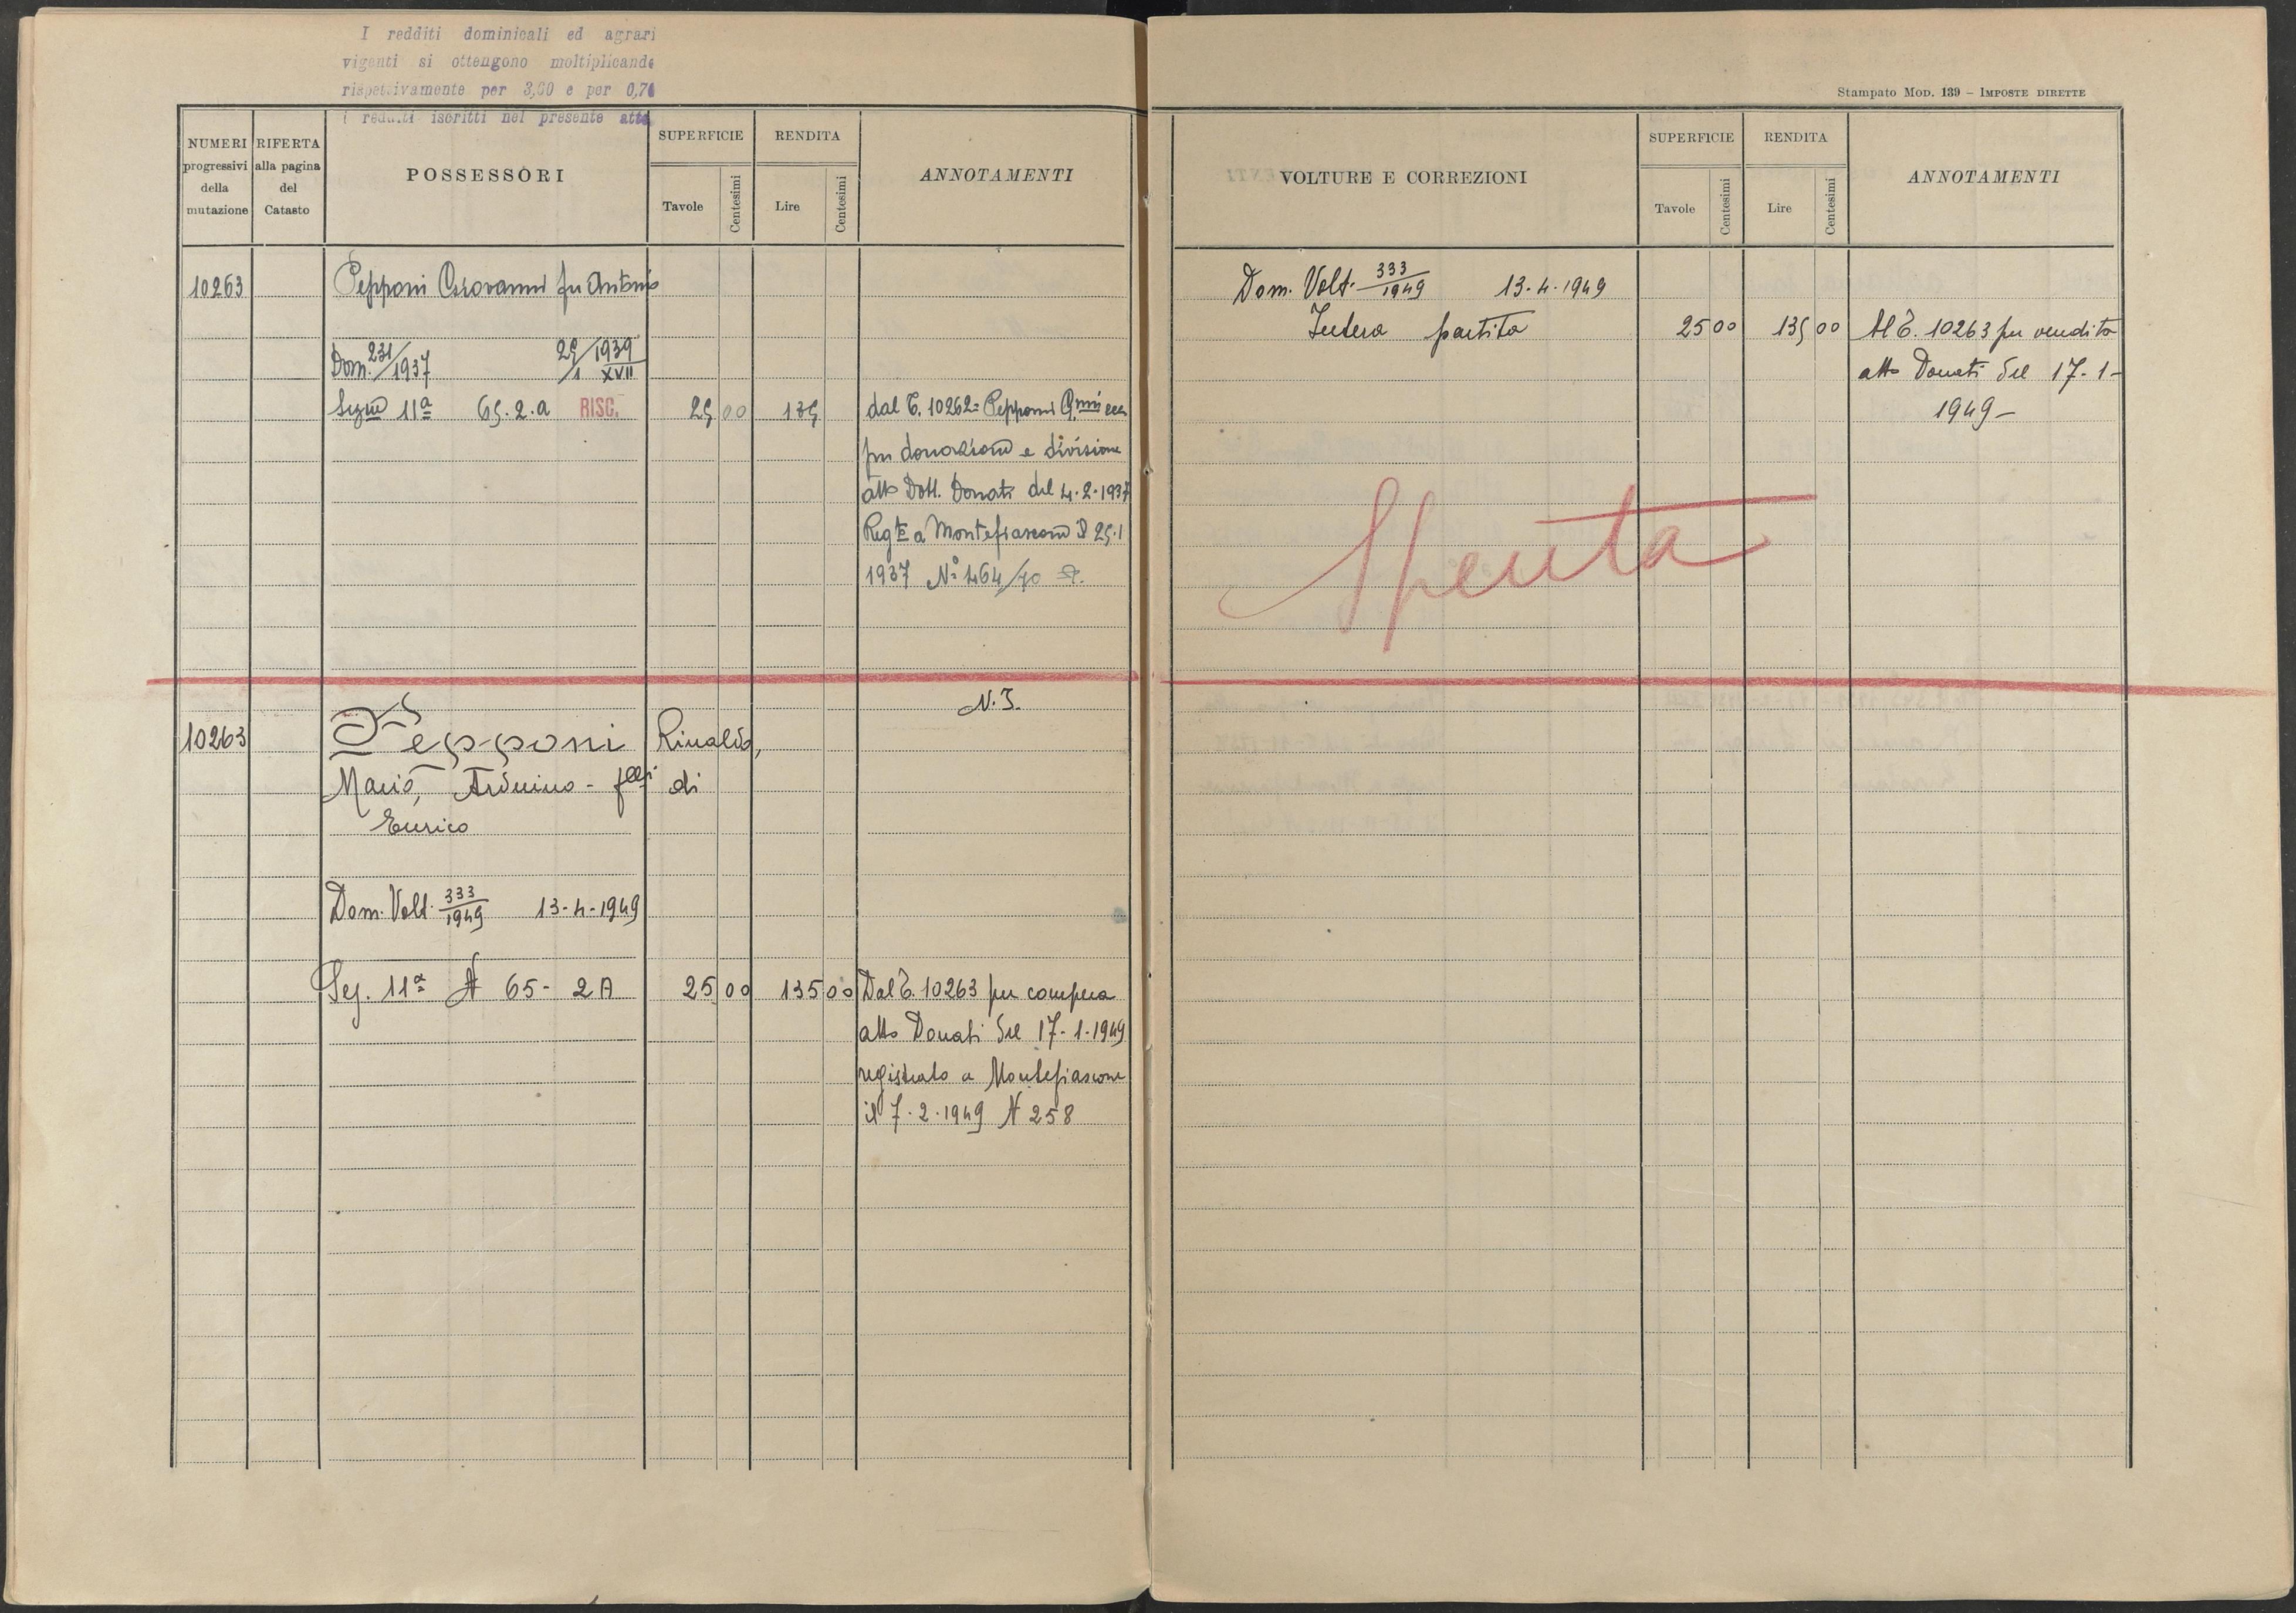 I redditi dominicali ed agrari
vigenti si ottengono moltiplicando
rispettivamente per 3,60 e per 0,70
i redditi iscritti nel presente atto
NUMERI progressivi della mutazione
RIFERTA alla pagina del Catasto
POSSESSORI
SUPERFICIE
Tavole
Centesimi
RENDITA
Lire
Centesimi
ANNOTAMENTI
10263
Pepponi Giovanni fu Antonio
Dom. 231/1937 25/1 1939 XVII
Sezne 11ª 65.2.a RISC. 25 00 135
dal T. 10262 = Pepponi Gnni ecc
per donazione e divisione
atto Dott. Donati del 4.2.1937
Regto a Montefiascone il 25.1
1937 N° 464/70
N. I.
10263 Pepponi Rinaldo,
Mario, Arduino - flli di
Enrico
Dom. Volt. 333/1949 13-4-1949
Sez. 11ª N 65 - 2A 25 00 135 00
Dal T. 10263 per compera
atto Donati del 17-1-1949
registrato a Montefiascone
il 7.2.1949 N 258
Stampato Mod. 139 – Imposte dirette
VOLTURE E CORREZIONI
SUPERFICIE
Tavole
Centesimi
RENDITA
Lire
Centesimi
ANNOTAMENTI
Dom. Volt. 333/1949 13-4-1949
Intera partita 25 00 135 00
Al T. 10263 per vendita
atto Donati del 17-1-
1949 -
Spenta